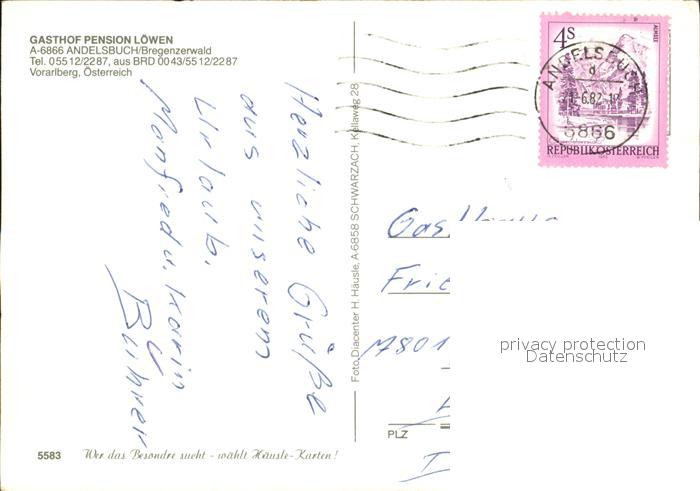 GASTHOF PENSION LÖWEN
A-6866 ANDELSBUCH/Bregenzerwald
Tel. 05512/2287, aus BRD 0043/5512/2287
Vorarlberg, Österreich
Herzliche Grüße
aus unserem
Urlaub.
Manfred u. Karin
Buhrer
Foto Diacenter H. Häusle, A-6858 SCHWARZACH, Kellaweg 28
4S
ALMSEE
ANDELSBUCH
6866
REPUBLIK ÖSTERREICH
7801
privacy protection
Datenschutz
PLZ
5583 Wer das Besondre sucht - wählt Häusle-Karten!